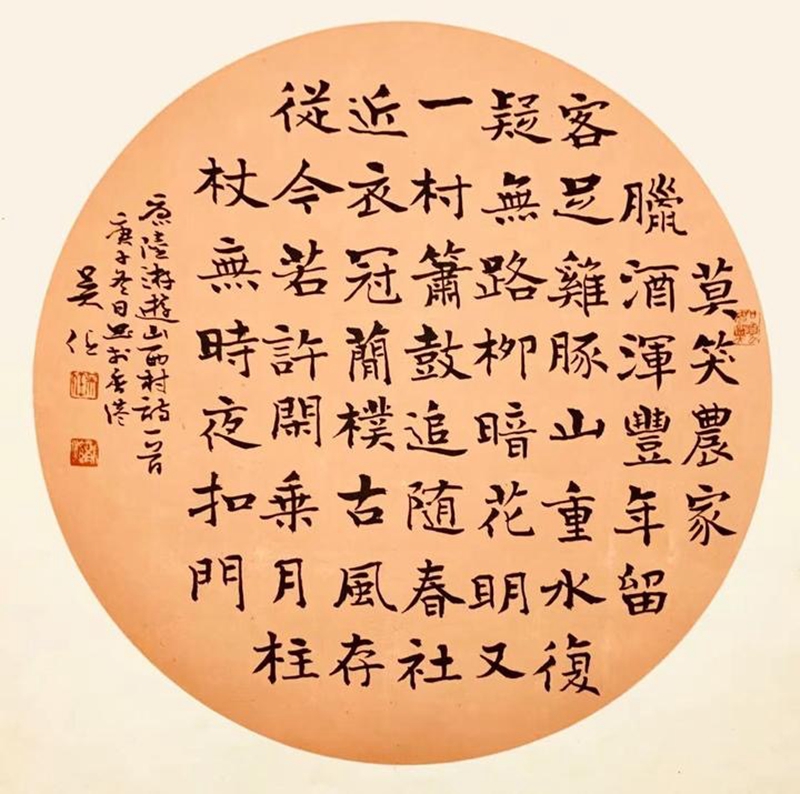 莫笑農家
臘酒渾豐年留
客足雞豚山重水復
疑無路柳暗花明又
一村簫鼓追随春社
近衣冠簡樸古風存
從今若許閑乘月柱
杖無時夜扣門
陸游遊山西村詩一首
庚子冬日書於香港
吴任